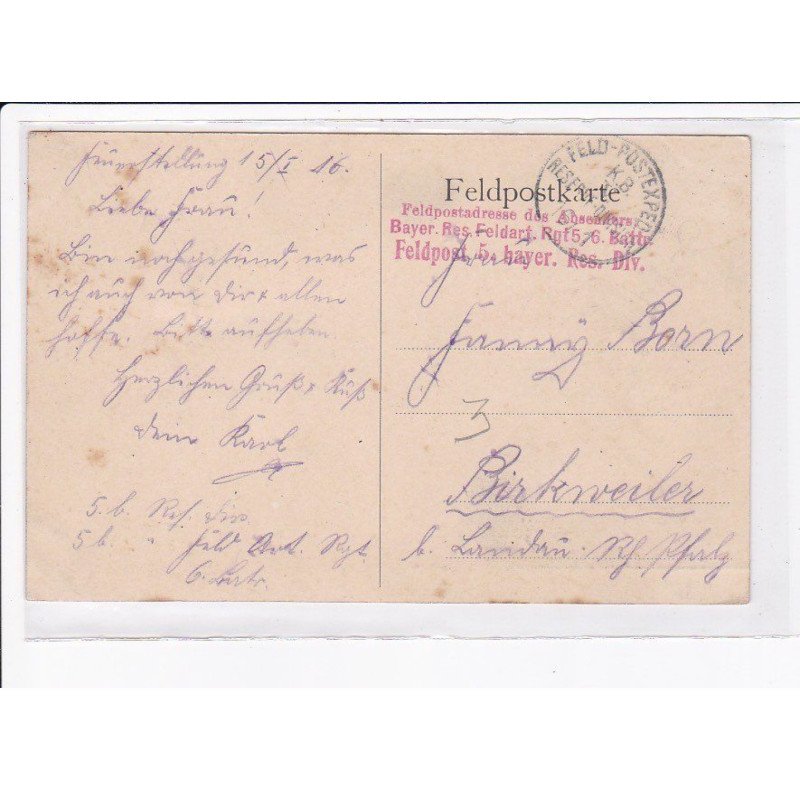 Feuerstellung 15/I 16.
Liebe Frau!
Bin noch gesund, was
ich auch von Dir & allen
hoffe. Bitte aufheben.
Herzlichen Gruß & Kuß
Dein Karl
5. b. Res. Div.
5 b. " Feld Art. Rgt.
6. Battr.
Feldpostkarte
FELD-POSTEXPED.
K.B.
Feldpostadresse des Absenders:
Bayer. Res. Feldart. Rgt 5, 6. Battr.
Feldpost 5. bayer. Res. Div.
Frau
Fanny Born
3
Birkweiler
b. Landau Rh Pfalz